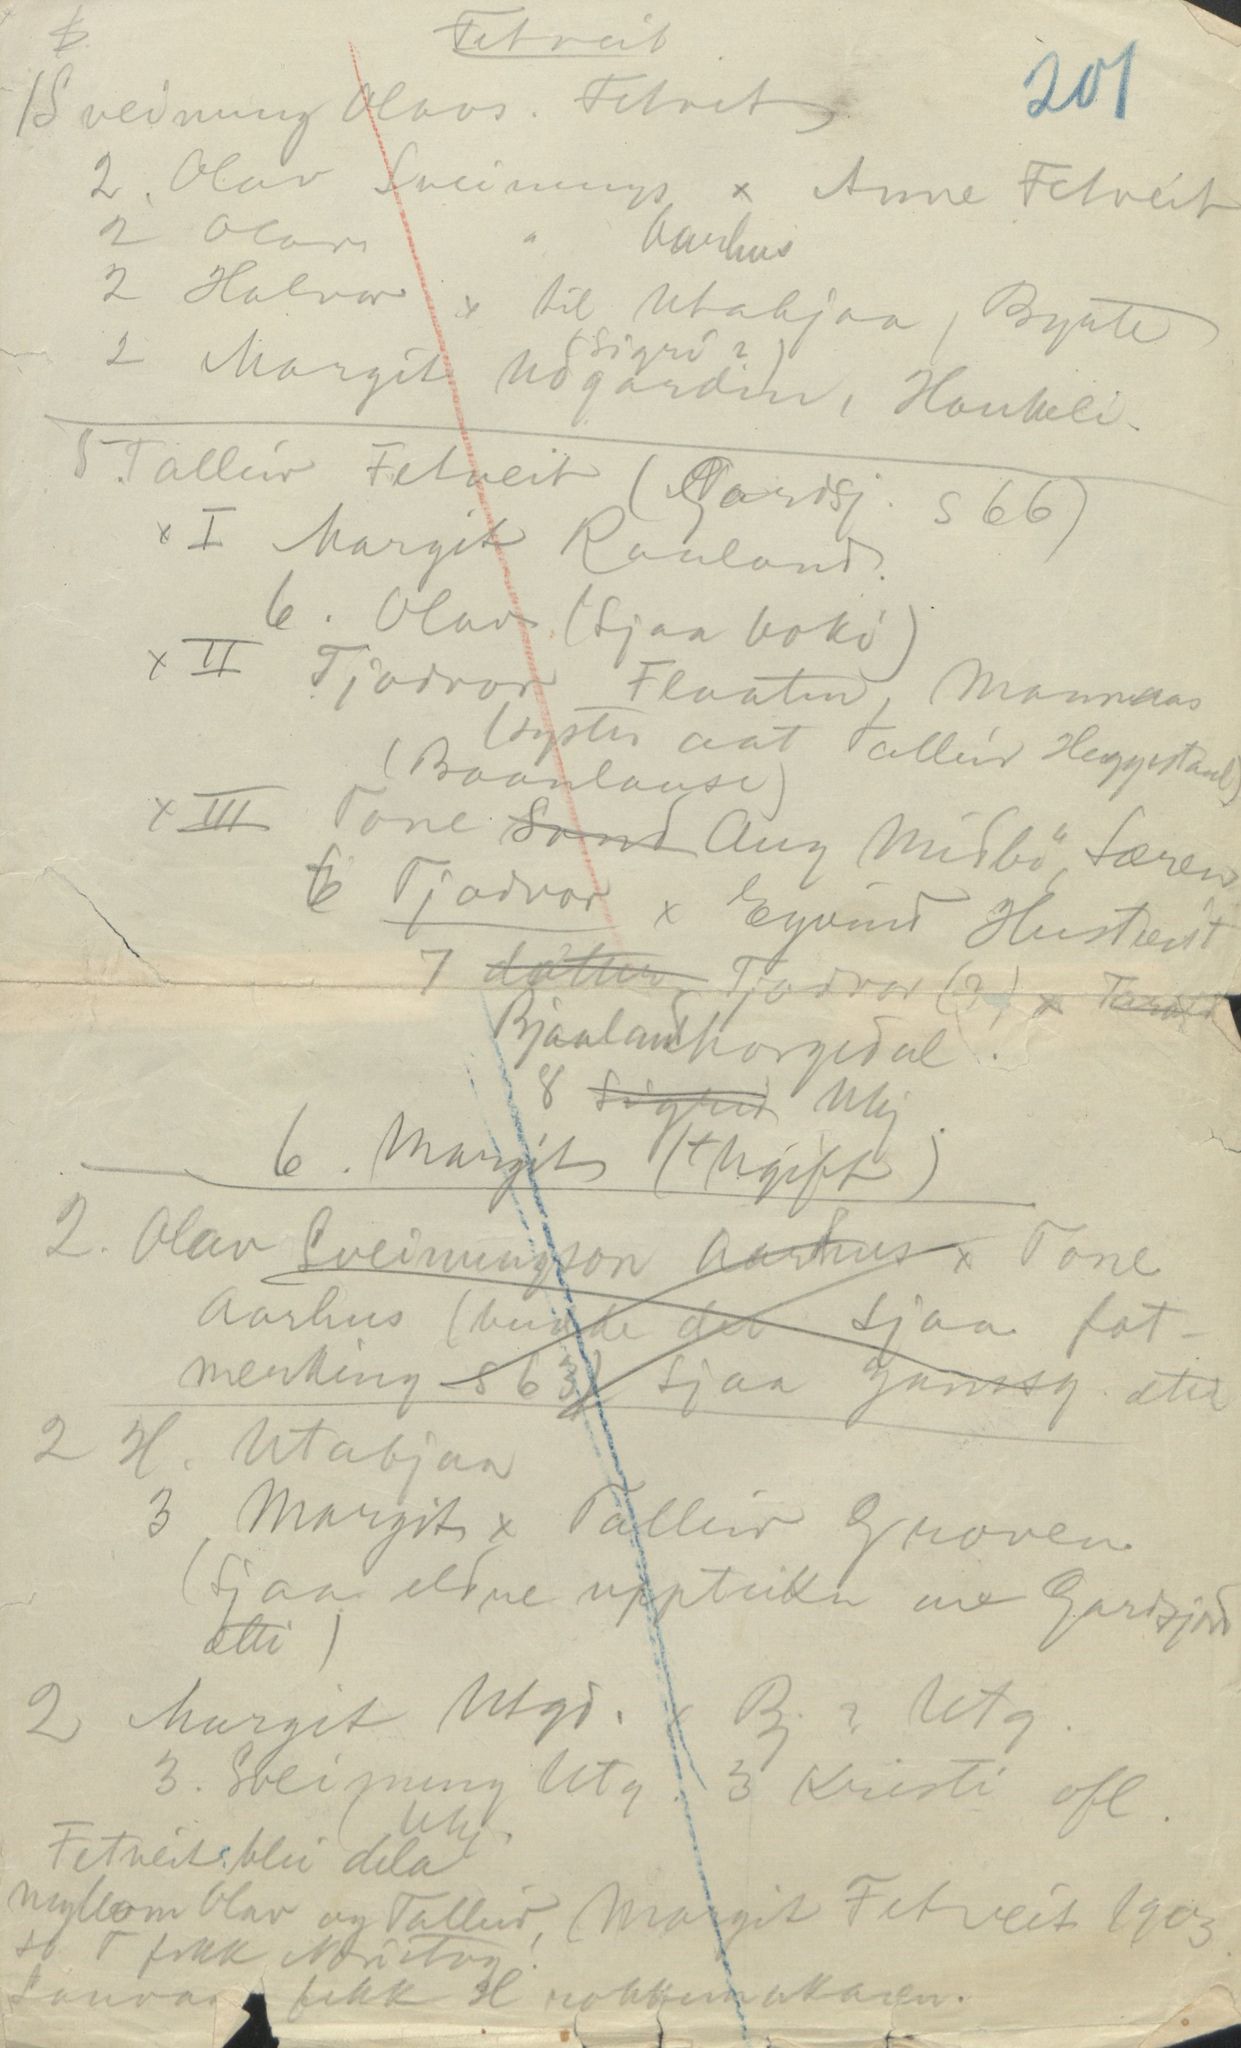 Fetveit
201
1 Sveinung Olavs. Fetveit
2. Olav Sveinungs x Anne Fetveit
2 Olav " Aarhus
2 Halvor x til Utabjaa, Bygte
(Sigrí ?)
2 Margit Udgardin, Haukeli.
5. Talleiv Fetveit (Gardsj. s 66)
x I Margit Rauland.
6. Olav (Sjaa boki)
x II Tjodvor Flaatin, Mannaas
(syster aat Talleiv Heggetaul)
(Baanlause)
x III Tone Sand Aug Midbö,
6 Tjodvor x Eyvind Hustveit
7 dotter, Tjodvor (?) x
Bjaaland Morgedal.
8 Sigrid Ukj.
6. Margit (+ Ugift)
2. Olav Sveinungson Aarhus x Tone
Aarhus (budde der Sjaa fot-
merking s 63) Sjaa etter
2 H. Utabjaa
3 Margit x Talleiv Groven
(Sjaa eldre uppteikn um Gardsjord
ætti)
2 Margit Utgd. x Bj. ? Utg.
3. Sveinung Utg. 3 Kristi ofl.
Ukj.
Fetveit blei dela
myllom Olav og Talleiv, Margit Fetveit 1903.
so T fekk Nordstog.
fekk H rokkemakaren.